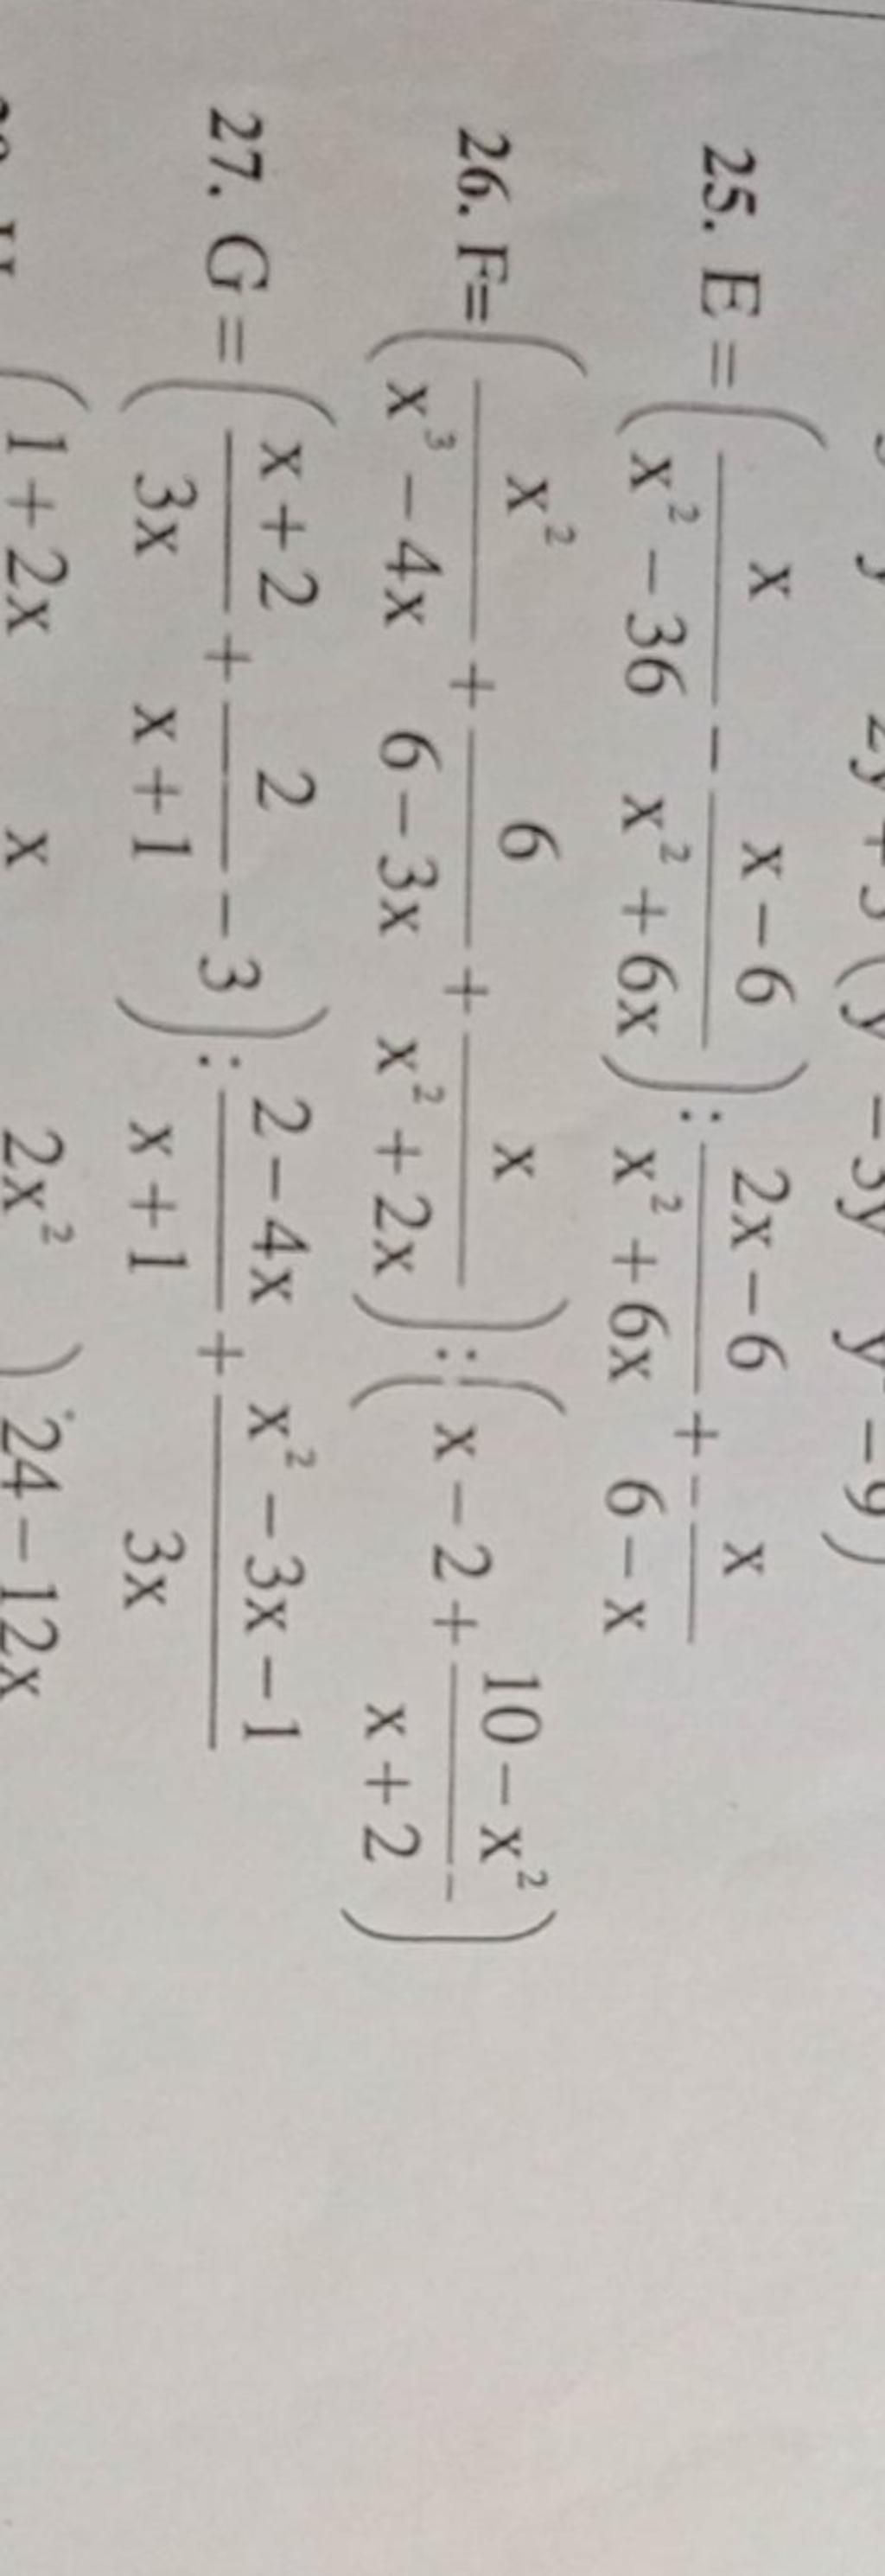 25. E = (x/(x² − 36) − (x − 6)/(x² + 6x)) : (2x − 6)/(x² + 6x) + x/(6 − x)
26. F= (x²/(x³ − 4x) + 6/(6 − 3x) + x/(x² + 2x)) : (x − 2 + (10 − x²)/(x + 2))
27. G = ((x + 2)/3x + 2/(x + 1) − 3) : (2 − 4x)/(x + 1) + (x² − 3x − 1)/3x
(1 + 2x x 2x² ) 24 − 12x